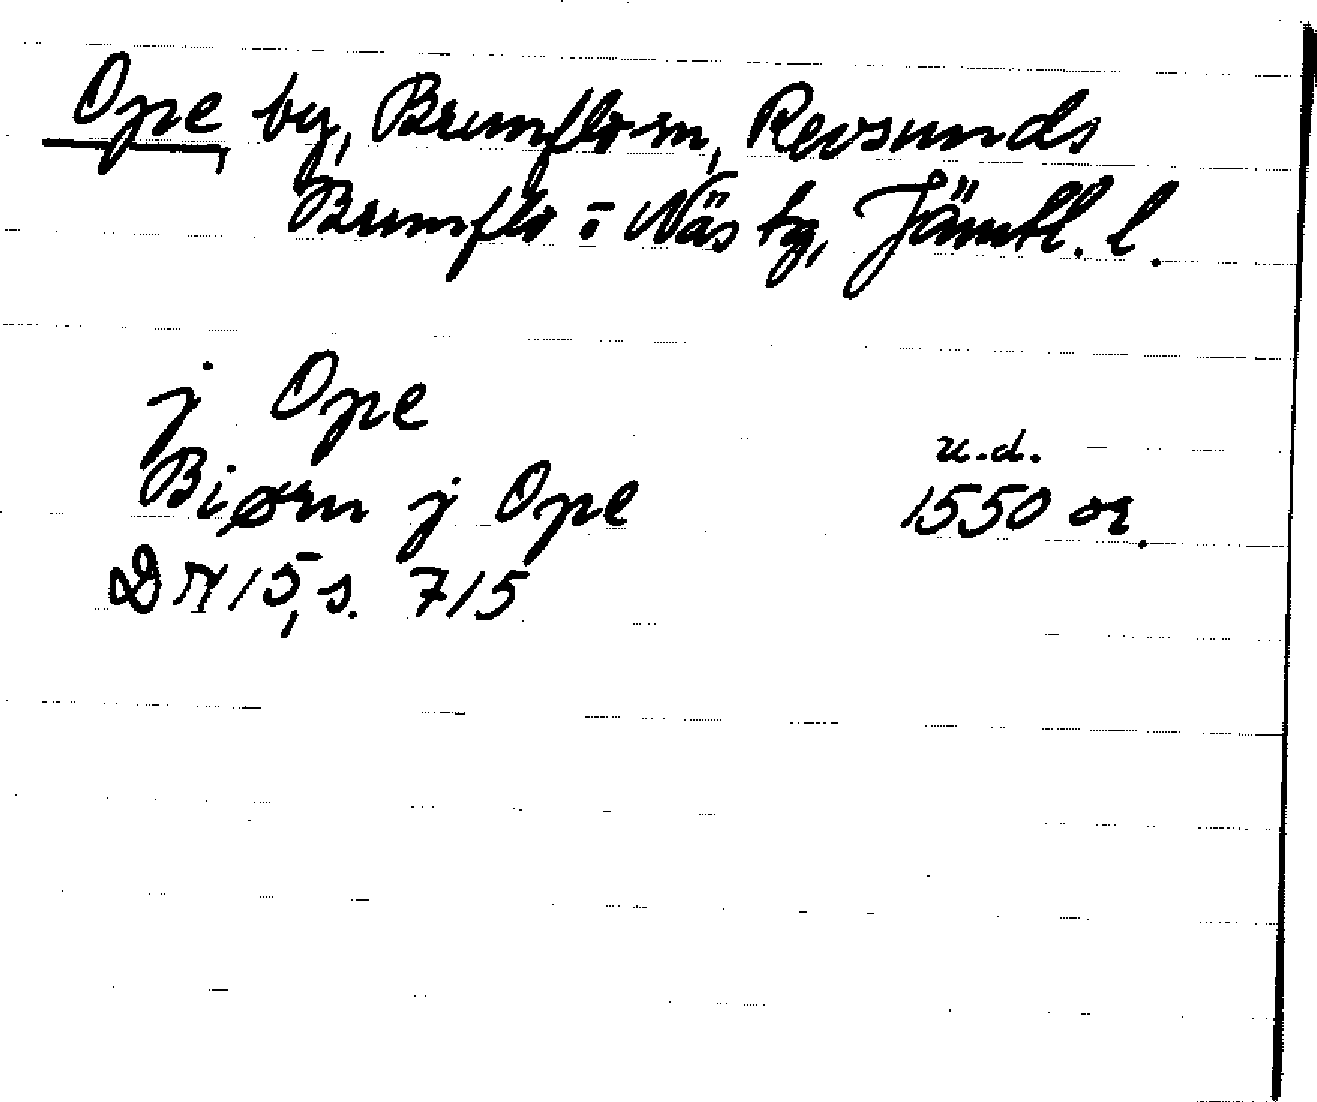 Ope, by, Brunflo sn, Revsunds
Brunflo o Näs tg, Jämtl. l.
j Ope
u.d.
Biørn j Ope 1550 or.
DN 15, s. 715